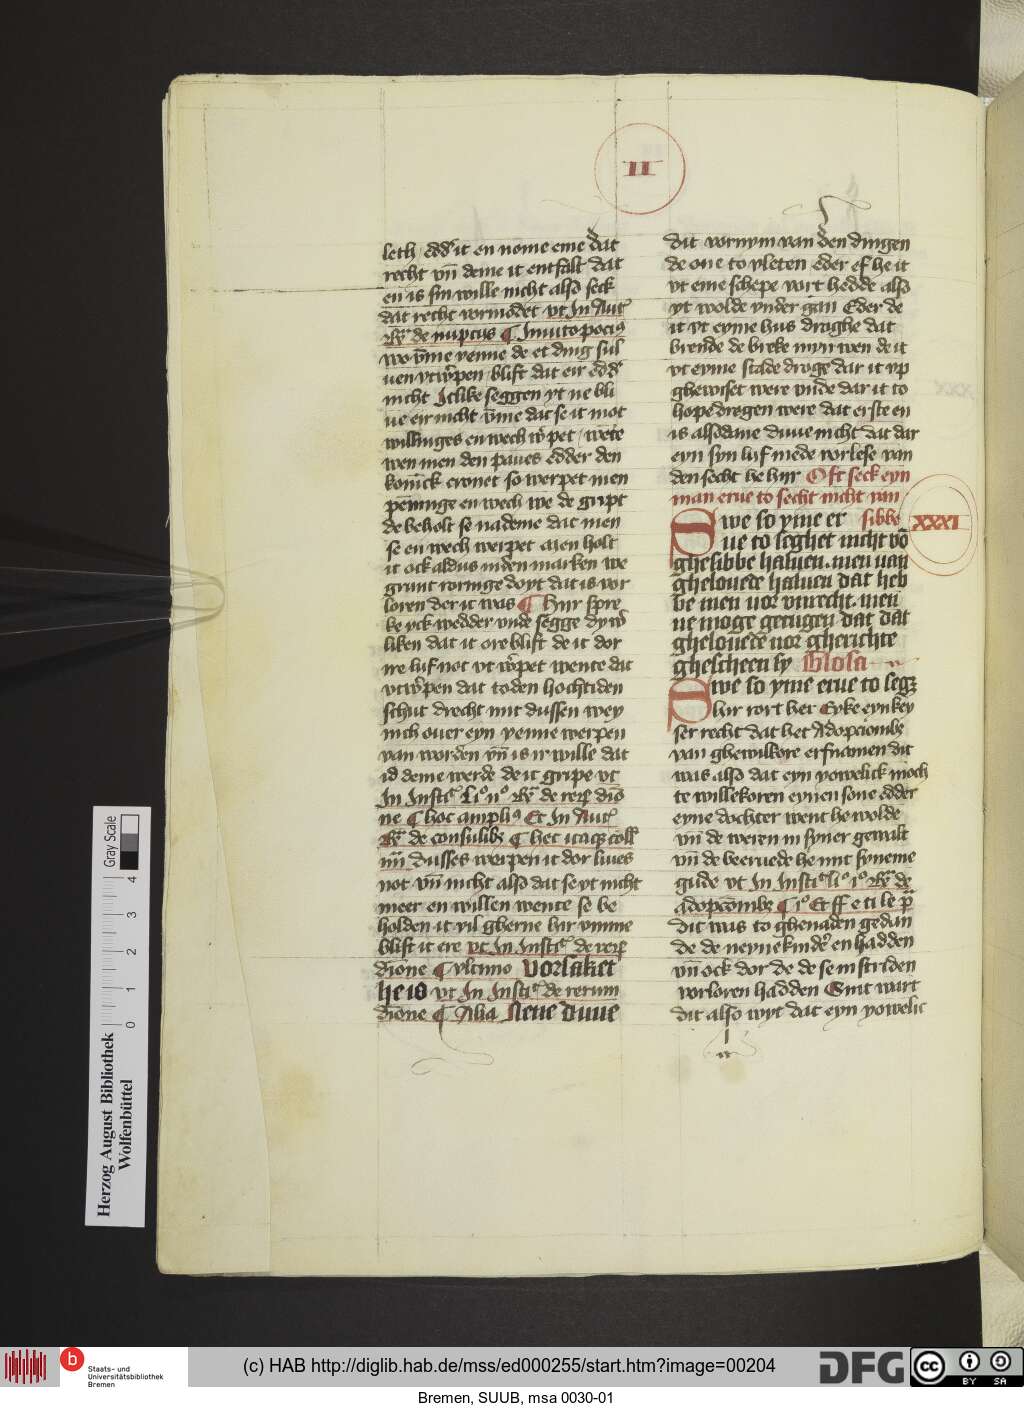 II
leth / edd̛ it en nome eme dat
recht vn̄ deme it entfalt dat
en is sin wille nicht also seck
dat recht vormodet vt In Aut̛
de nuptus ¶ Inuito pociꝰ
wo v̄me yenne de et ding sul
uen vtw̛pen / blift dat eir edd̛
nicht Itlike seggen yt ne bli
ue eir nicht v̄me dat se it mot
willinges en wech w̛pet / wete
wen men den paues edder den
konick cronet so werpet men
pēninge en wech we de gript
de beholt se nademe dat men
se en wech werpet Men holt
it ock aldus in den marken we
grunt roringe doyt dat is vor
loren der it was ¶ Hyr spre
ke yck wedder vnde segge dyw̛
liken dat it ore blift de it dor
ore luf not vt w̛pet wente dat
vtw̛pen dat to den hochtiden
schut drecht mit dussen wey
nich ouer eyn yenne werpen
van worden vn̄ is ir wille dat
id deme werde de it gripe vt
In Insti͛ Li° ii° de reꝝ diō
ne ¶ hoc ampliꝰ Et In Aut̛
de consulibꝫ ¶ hec itaqꝫ coll̛
iiii dusses werpen it dor liues
not vn̄ nicht also dat se yt nicht
meer en willen wente se be
holden it vil gherne hir vmme
blift it ere vt In Insti͛ de reꝝ
dione ¶ vltimo Vorlaket
he is vt In Insti͛ de rerum
dione ¶ Alia Neue duue
dit vornym van den dingen
de one to vleten eder ef he it
vt eme schepe vort hedde also
yt wolde vnder gan Eder de
it vt eyme hus droghe dat
brende de breke myn wen de it
vt eyme stalde droge dar it vp
ghewiset were vnde dar it to
hope dregen were dat erste en
is alsodane duue nicht dat dar
eyn syn luf mede vorlese van
den secht he hyr Oft seck eyn
man erue to secht nicht van
sibbe
XXXI
Swe so yme er
ue to seghet nicht vō
ghesibbe haluen. men van
ghelouede haluen dat heb
be men vor vnrecht. men
ne moge getugen dat dat
ghelouede vor gherichte
ghescheen sy Glosa
Swe so yme erue to segꝫ
hir vort her Eyke eyn key
ser recht dat het Adopcionibꝫ
van ghewilkore erfnamen dit
was also dat eyn yowelick moch
te willekoren eynen sone edder
eyne dochter went he wolde
vn̄ de weren in syner gewalt
vn̄ de beeruede he mit syneme
gude vt In Insti͛ li° i° de
adopcōnibꝫ ¶ i° Et ff e ti le p̄
dit was to ghenaden gedan
de de neyne kind̛ en hadden
vn̄ ock dor de de se in striden
vorloren hadden Sint wart
dit also wyt dat eyn yowelic
Herzog August Bibliothek
Wolfenbüttel
0 1 2 3 4
Gray Scale
b
Staats- und
Universitätsbibliothek
Bremen
(c) HAB http://diglib.hab.de/mss/ed000255/start.htm?image=00204
DFG
cc BY SA
Bremen, SUUB, msa 0030-01